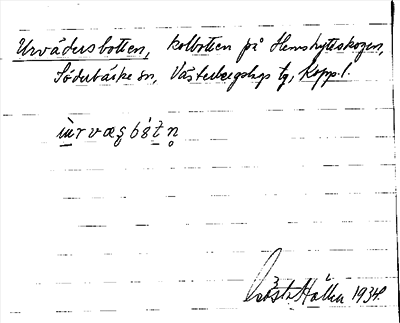 Urvädersbotten, kolbotten på Hemshytteskogen,
Söderbärke sn, Västerbergslags tg, Kopp. l.
Gösta Hallen 1934.